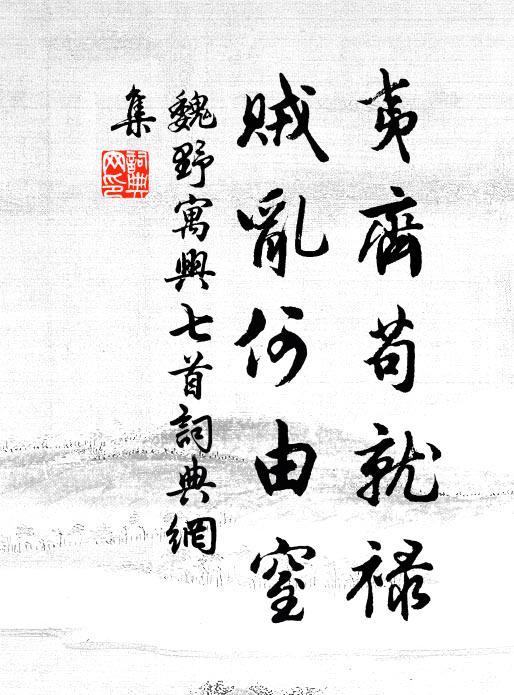 夷齊苟就祿
賊亂何由窒
魏野寓興七首詞典網
集
詞典
网印